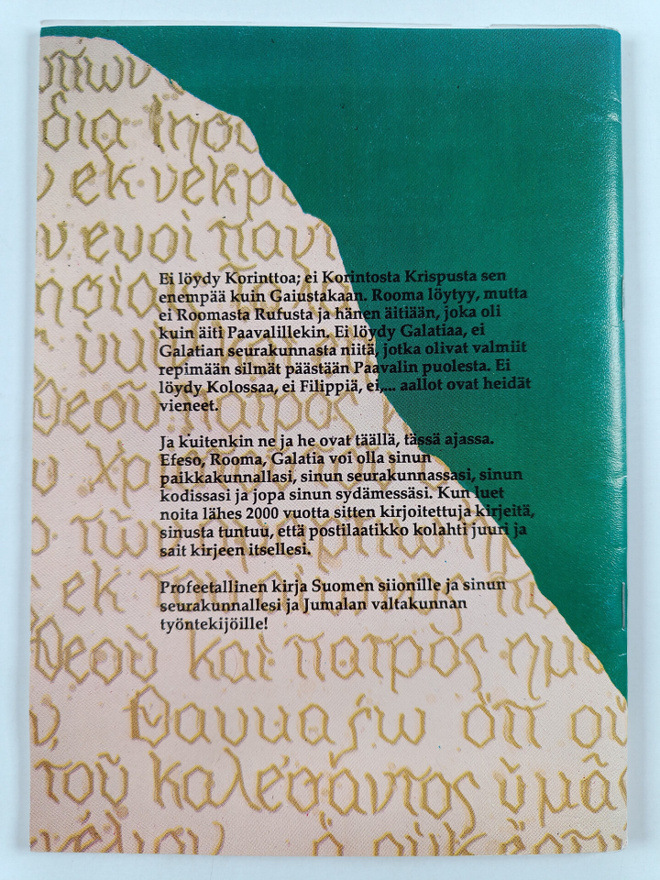 Ei löydy Korinttoa; ei Korintosta Krispusta sen
enempää kuin Gaiustakaan. Rooma löytyy, mutta
ei Roomasta Rufusta ja hänen äitiään, joka oli
kuin äiti Paavalillekin. Ei löydy Galatiaa, ei
Galatian seurakunnasta niitä, jotka olivat valmiit
repimään silmät päästään Paavalin puolesta. Ei
löydy Kolossaa, ei Filippiä, ei,... aallot ovat heidät
vieneet.
Ja kuitenkin ne ja he ovat täällä, tässä ajassa.
Efeso, Rooma, Galatia voi olla sinun
paikkakunnallasi, sinun seurakunnassasi, sinun
kodissasi ja jopa sinun sydämessäsi. Kun luet
noita lähes 2000 vuotta sitten kirjoitettuja kirjeitä,
sinusta tuntuu, että postilaatikko kolahti juuri ja
sait kirjeen itsellesi.
Profeetallinen kirja Suomen siionille ja sinun
seurakunnallesi ja Jumalan valtakunnan
työntekijöille!
δια Ἰησοῦ
ἐκ νεκρ
εκ
θεοῦ καὶ πατρὸς ἡμ
θαυμάζω ὅτι οὕ
τοῦ καλέσαντος ὑμᾶ